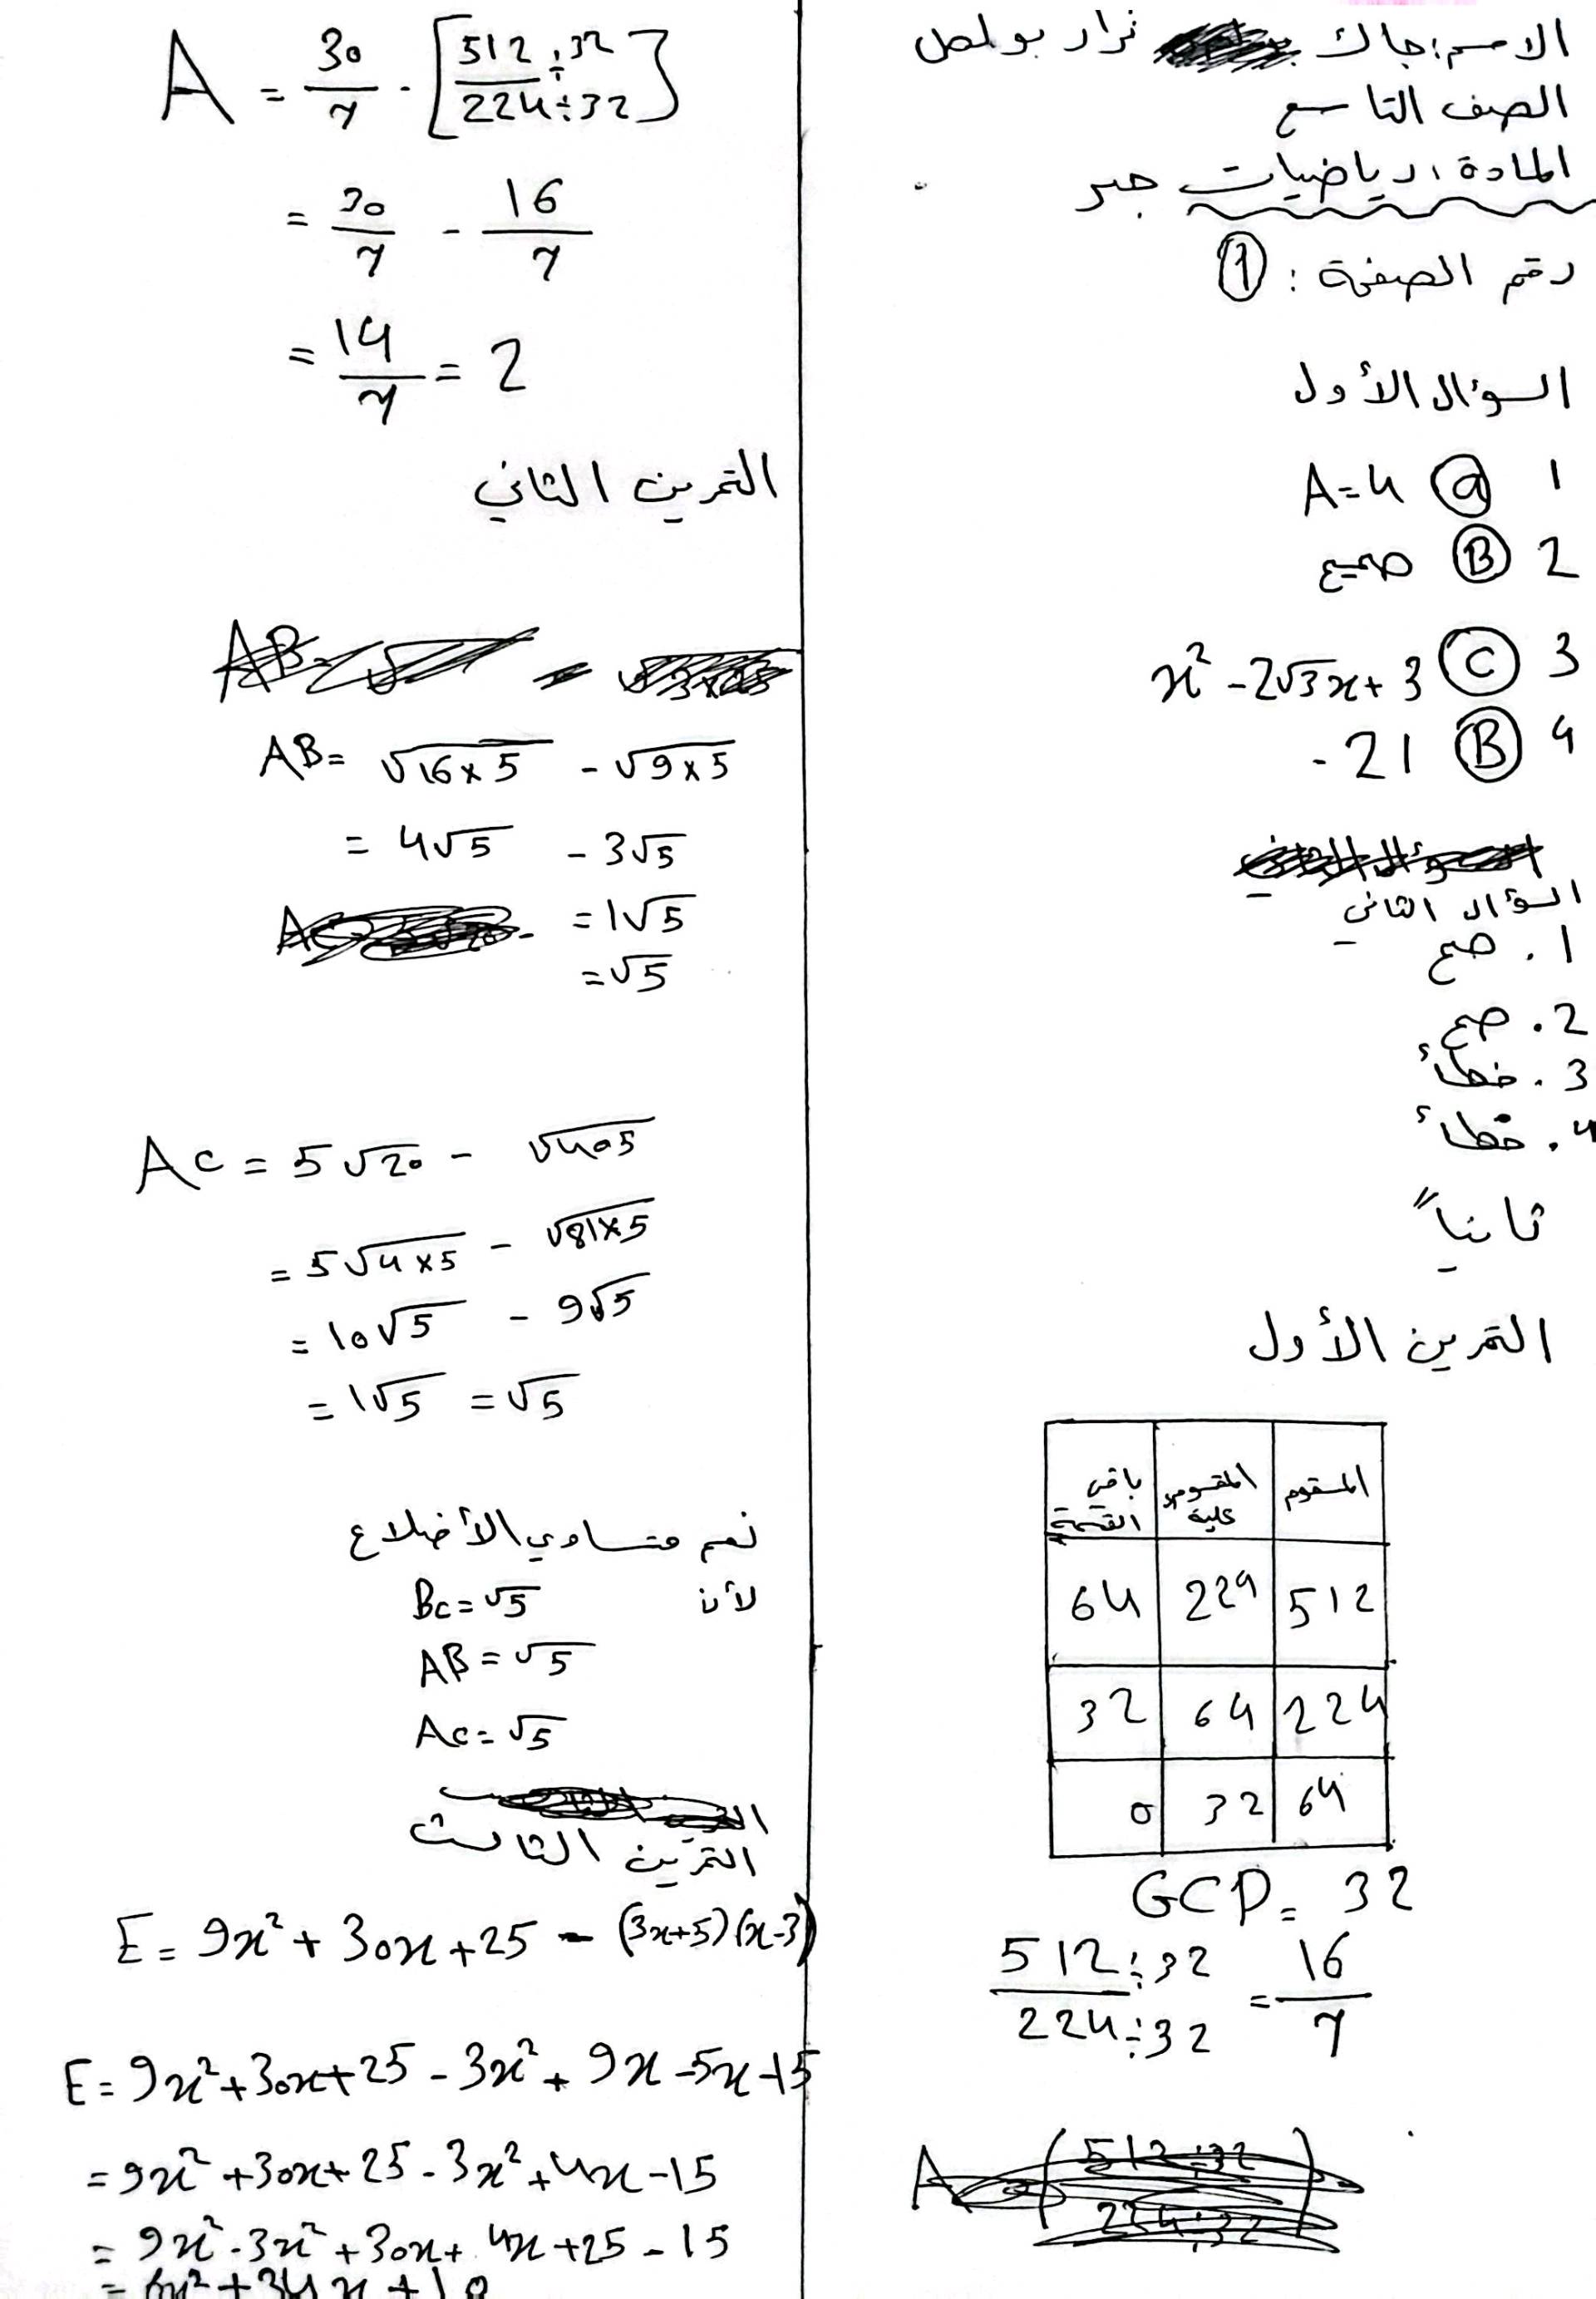 الاسم: جاك نزار بولص
الصف التاسع
المادة: رياضيات جبر
رقم الصفحة: 1
السؤال الأول
1 a A=4
2 B صحيح
3 C x² - 2√3x + 3
4 B -21
السؤال الثاني
1. صح
2. صح
3. خطأ
4. خطأ
ثانياً
التمرين الأول
المقسوم المقسوم عليه باقي القسمة
512 224 64
224 64 32
64 32 0
GCD = 32
512÷32 / 224÷32 = 16/7
A = 30/7 - [512÷32 / 224÷32]
= 30/7 - 16/7
= 14/7 = 2
التمرين الثاني
AB = √16×5 - √9×5
= 4√5 - 3√5
= 1√5
= √5
AC = 5√20 - √405
= 5√4×5 - √81×5
= 10√5 - 9√5
= 1√5 = √5
نعم متساوي الأضلاع
لأن BC = √5
AB = √5
AC = √5
التمرين الثالث
E = 9x² + 30x + 25 - (3x+5)(x-3)
E = 9x² + 30x + 25 - 3x² + 9x - 5x + 15
= 9x² + 30x + 25 - 3x² + 4x - 15
= 9x² - 3x² + 30x + 4x + 25 - 15
= 6x² + 34x + 10